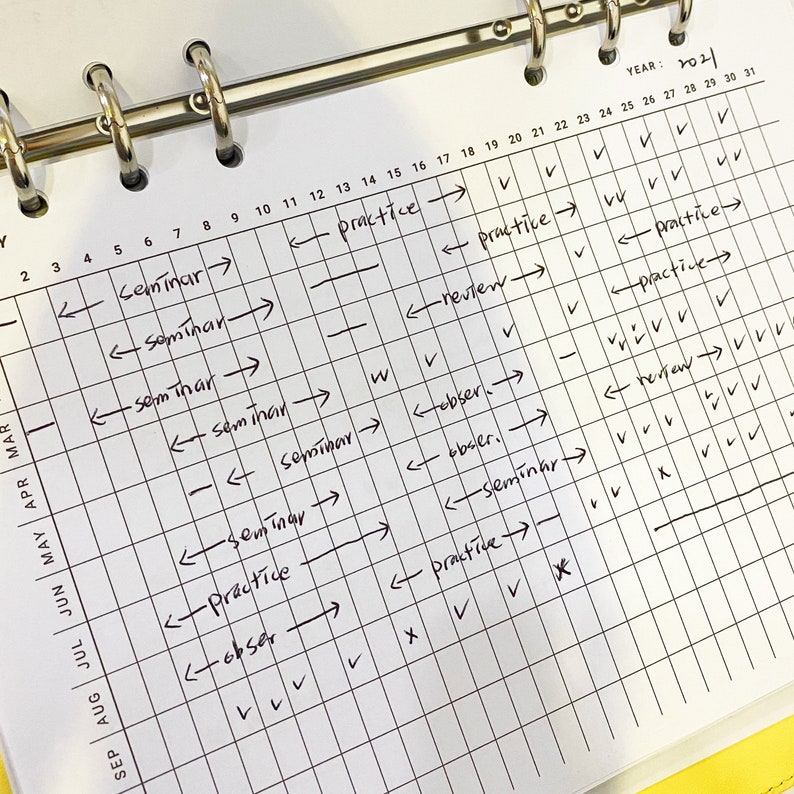 YEAR: 2021
Y
2 3 4 5 6 7 8 9 10 11 12 13 14 15 16 17 18 19 20 21 22 23 24 25 26 27 28 29 30 31
seminar practice
seminar practice practice
seminar review practice
MAR seminar
APR seminar obser. review
MAY seminar obser.
JUN practice seminar
JUL obser practice
AUG
SEP